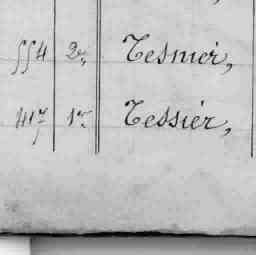 554 2e, Tesnier,
417 1er Tessier,